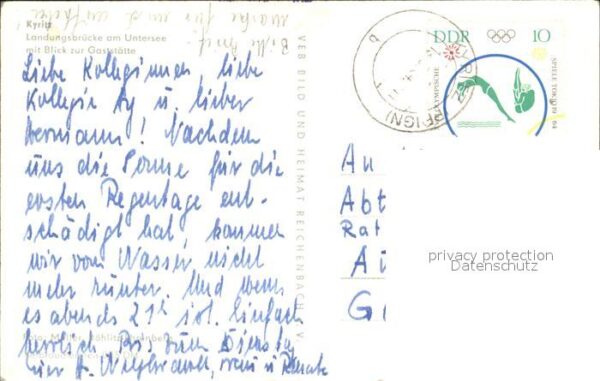 Bitte Brief-
marke für mich aufheben
Kyritz
Landungsbrücke am Untersee
mit Blick zur Gaststätte
Liebe Kolleginnen, liebe
Kollegin Ky u. lieber
Hermann! Nachdem
uns die Sonne für die
ersten Regentage ent-
schädigt hat, kommen
wir vom Wasser nicht
mehr runter. Und wenn
es abends 21h ist. Einfach
herrlich. Bis zum Dienstag
Renate
VEB BILD UND HEIMAT REICHENBACH I. V.
DDR 10
OLYMPISCHE
SPIELE TOKIO 19 64
KYRITZ
(PRIGN)
An
Abt
Rat
A
G
privacy protection
Datenschutz